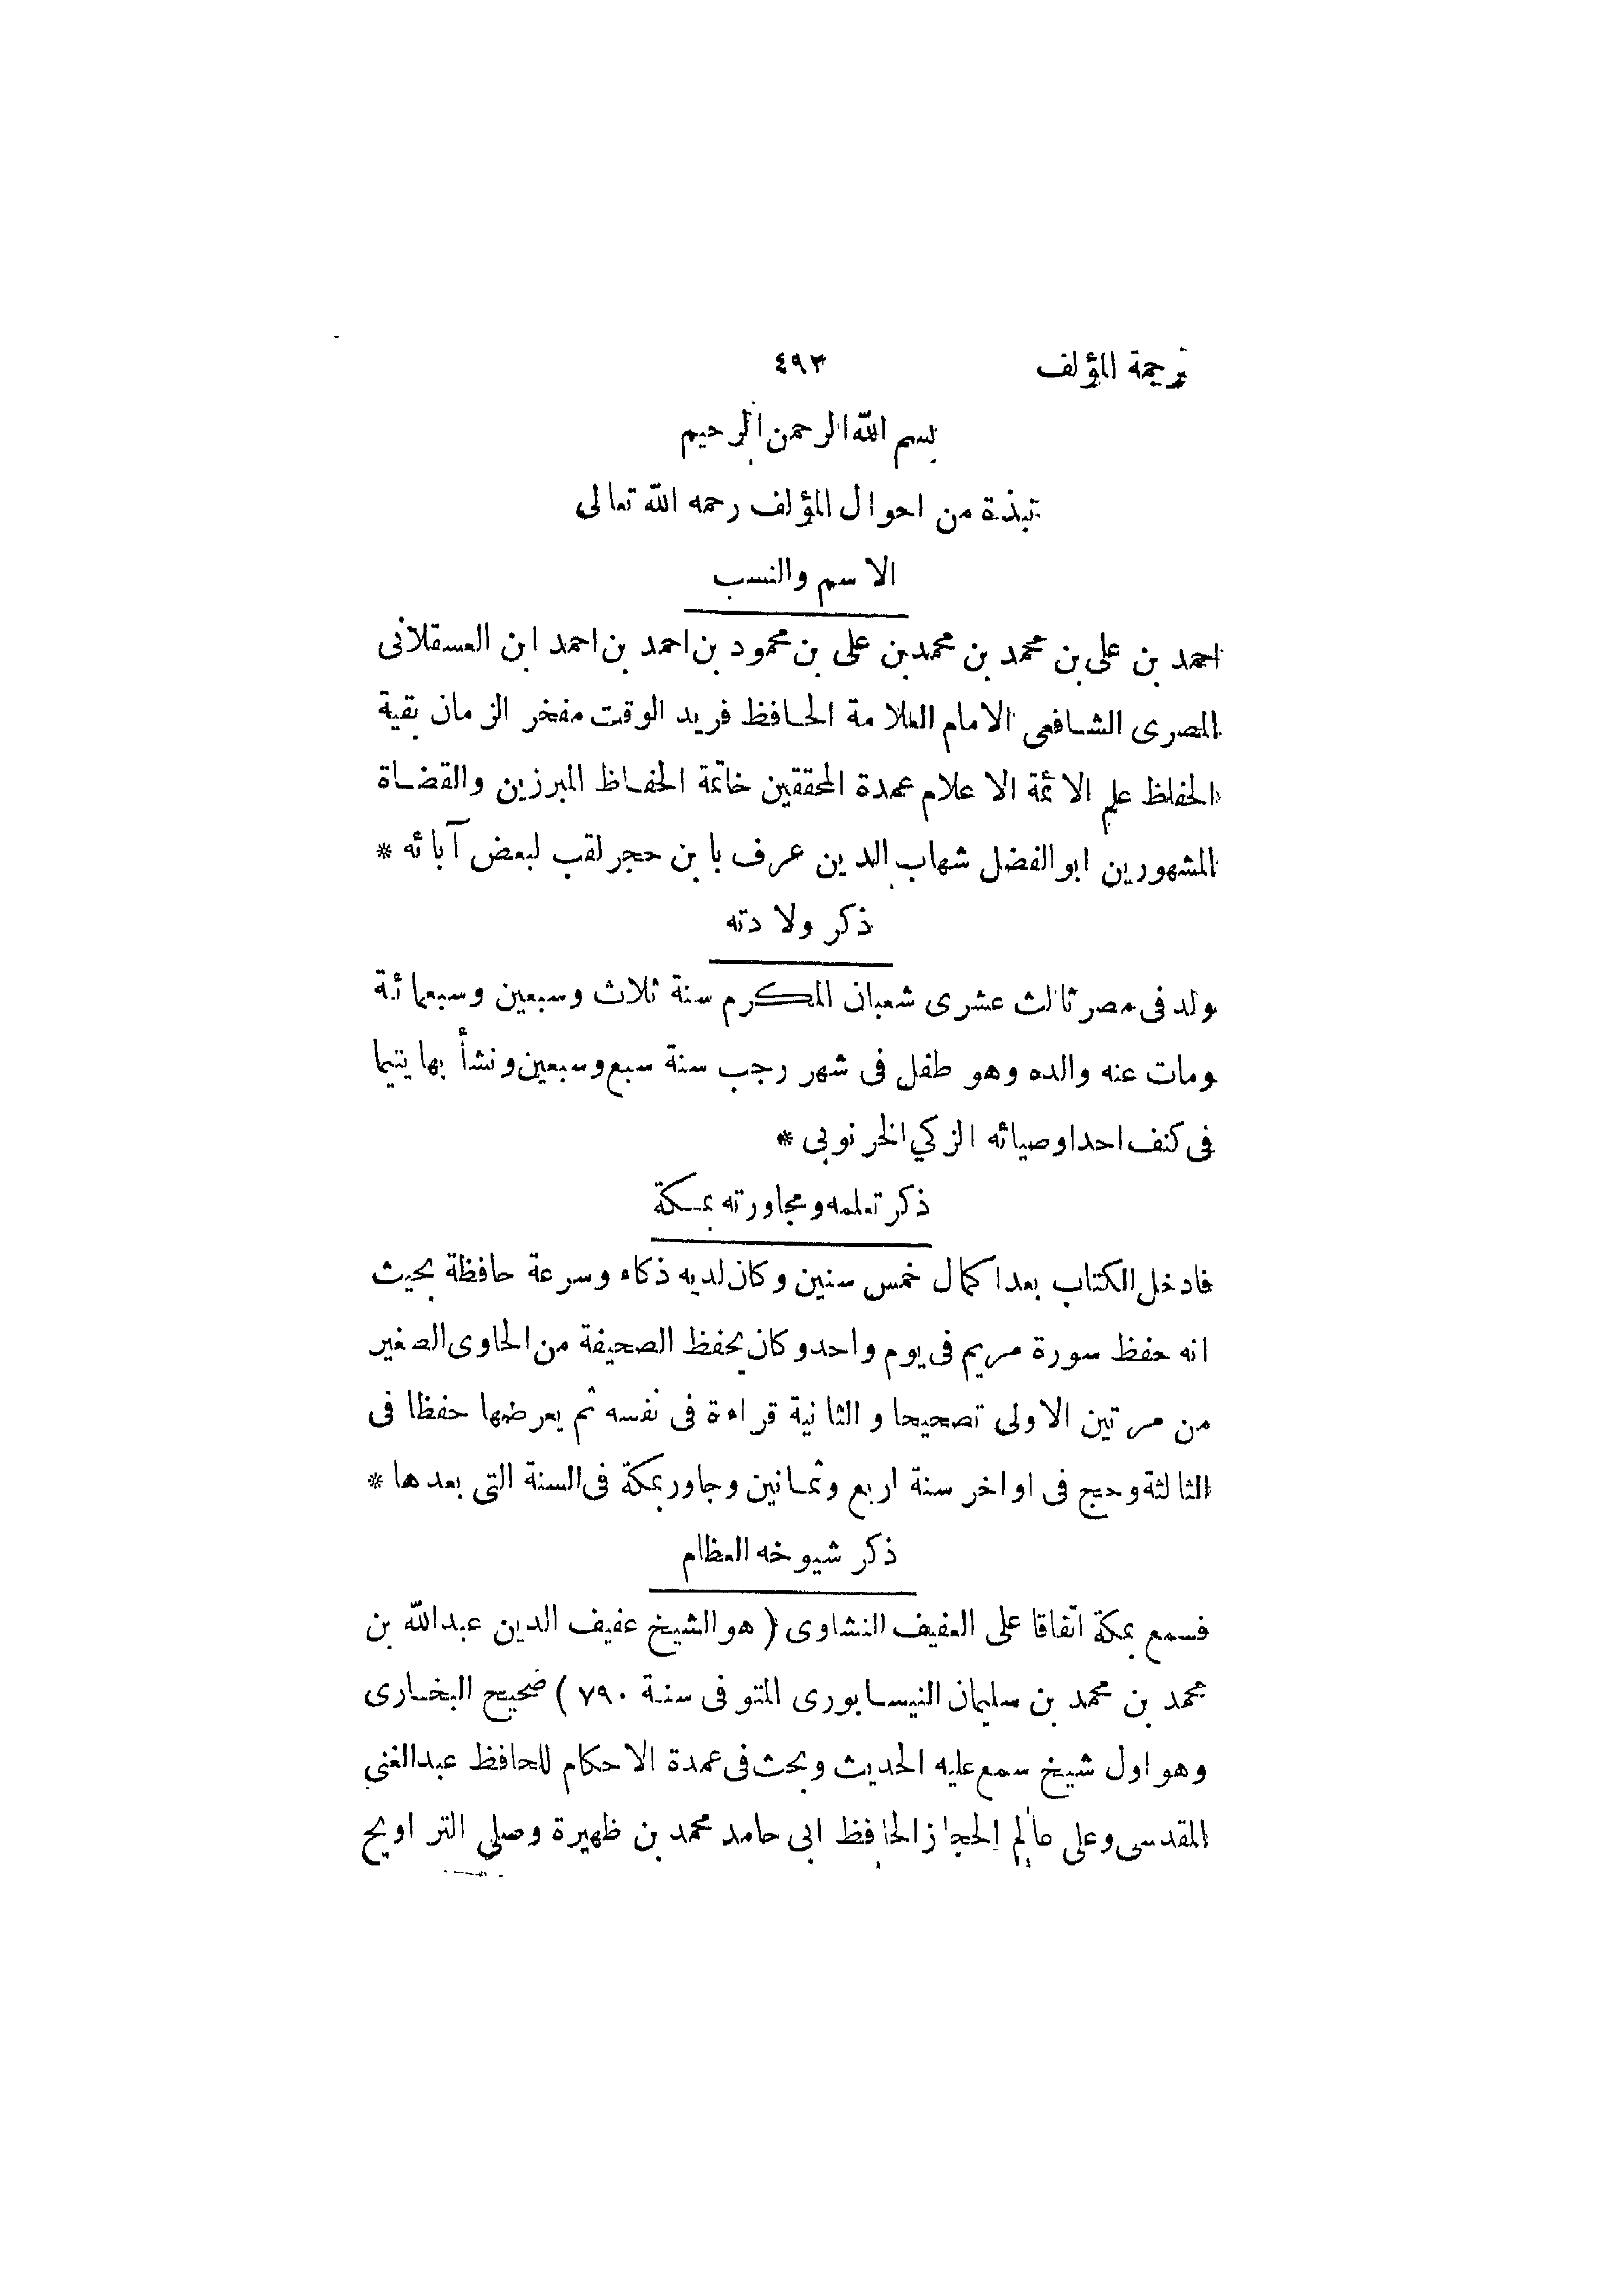 ترجمة المؤلف ٤٩٣
بسم الله الرحمن الرحيم
نبذة من احوال المؤلف رحمه الله تعالى
الاسم والنسب
احمد بن على بن محمد بن محمد بن على بن محمود بن احمد بن احمد ابن العسقلانى
المصرى الشافعى الامام العلامة الحافظ فريد الوقت مفخر الزمان بقية
الحفاظ علم الائمة الاعلام عمدة المحققين خاتمة الحفاظ المبرزين والقضاة
المشهورين ابو الفضل شهاب الدين عرف بابن حجر لقب لبعض آبائه *
ذكر ولادته
ولد فى مصر ثالث عشرى شعبان المكرم سنة ثلاث وسبعين وسبعمائة
ومات عنه والده وهو طفل فى شهر رجب سنة سبع وسبعين ونشأ بها يتيما
فى كنف احد اوصيائه الزكي الخرنوبى *
ذكر تعلمه ومجاورته بمكة
فادخل الكتاب بعد اكمال خمس سنين وكان لديه ذكاء وسرعة حافظة بحيث
انه حفظ سورة مريم فى يوم واحد وكان يحفظ الصحيفة من الحاوى الصغير
من مرتين الاولى تصحيحا والثانية قراءة فى نفسه ثم يعرضها حفظا فى
الثالثة وحج فى اواخر سنة اربع وثمانين وجاور بمكة فى السنة التى بعدها *
ذكر شيوخه العظام
فسمع بمكة اتفاقا على العفيف النشاورى ( هو الشيخ عفيف الدين عبدالله بن
محمد بن محمد بن سليمان النيسابورى المتوفى سنة ٧٩٠ ) صحيح البخارى
وهو اول شيخ سمع عليه الحديث وبحث فى عمدة الاحكام للحافظ عبدالغنى
المقدسى وعلى عالم الحجاز الحافظ ابى حامد محمد بن ظهيرة وصلى التراويح